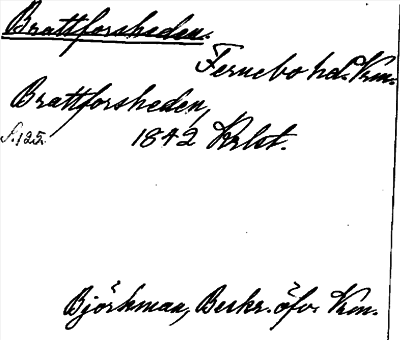 Brattforsheden.
Fernebo hd. Vrm.
Brattforsheden,
s. 125. 1842 Krlst.
Björkman, Beskr. öfv. Vrm.